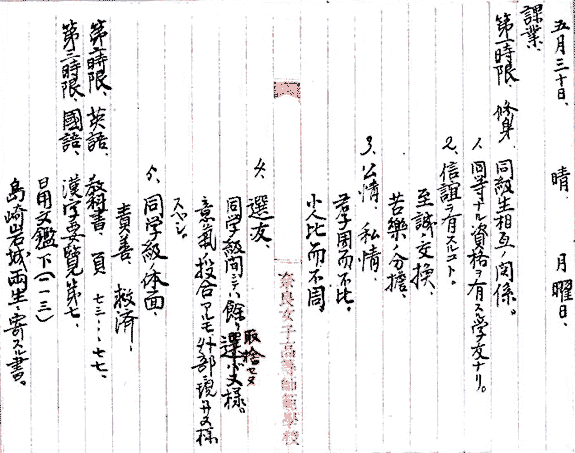 五月三十日、 晴 月曜日、
課業、
第一時限、修身、同級生相互ノ関係。
1、同等ナル資格ヲ有ス学友ナリ。
2、信誼ヲ有スルコト。
至誠ノ交換、
苦樂ノ分擔、
3、公情、私情、
君子周而不比。
小人比而不周
4、選友、
同学級間ニハ餘リ選バヌ様。
取捨セヌ
意氣投合アルモ外部ニ現ハサヌ様
スベシ。
5、同学級ノ体面、
責善、救済、
第二時限、英語、教科書、頁 七三…七七、
第三時限、國語、漢字要覽第七、
日用文鑑下(一三)
島崎岩城両生ニ寄スル書。
奈良女子高等師範學校